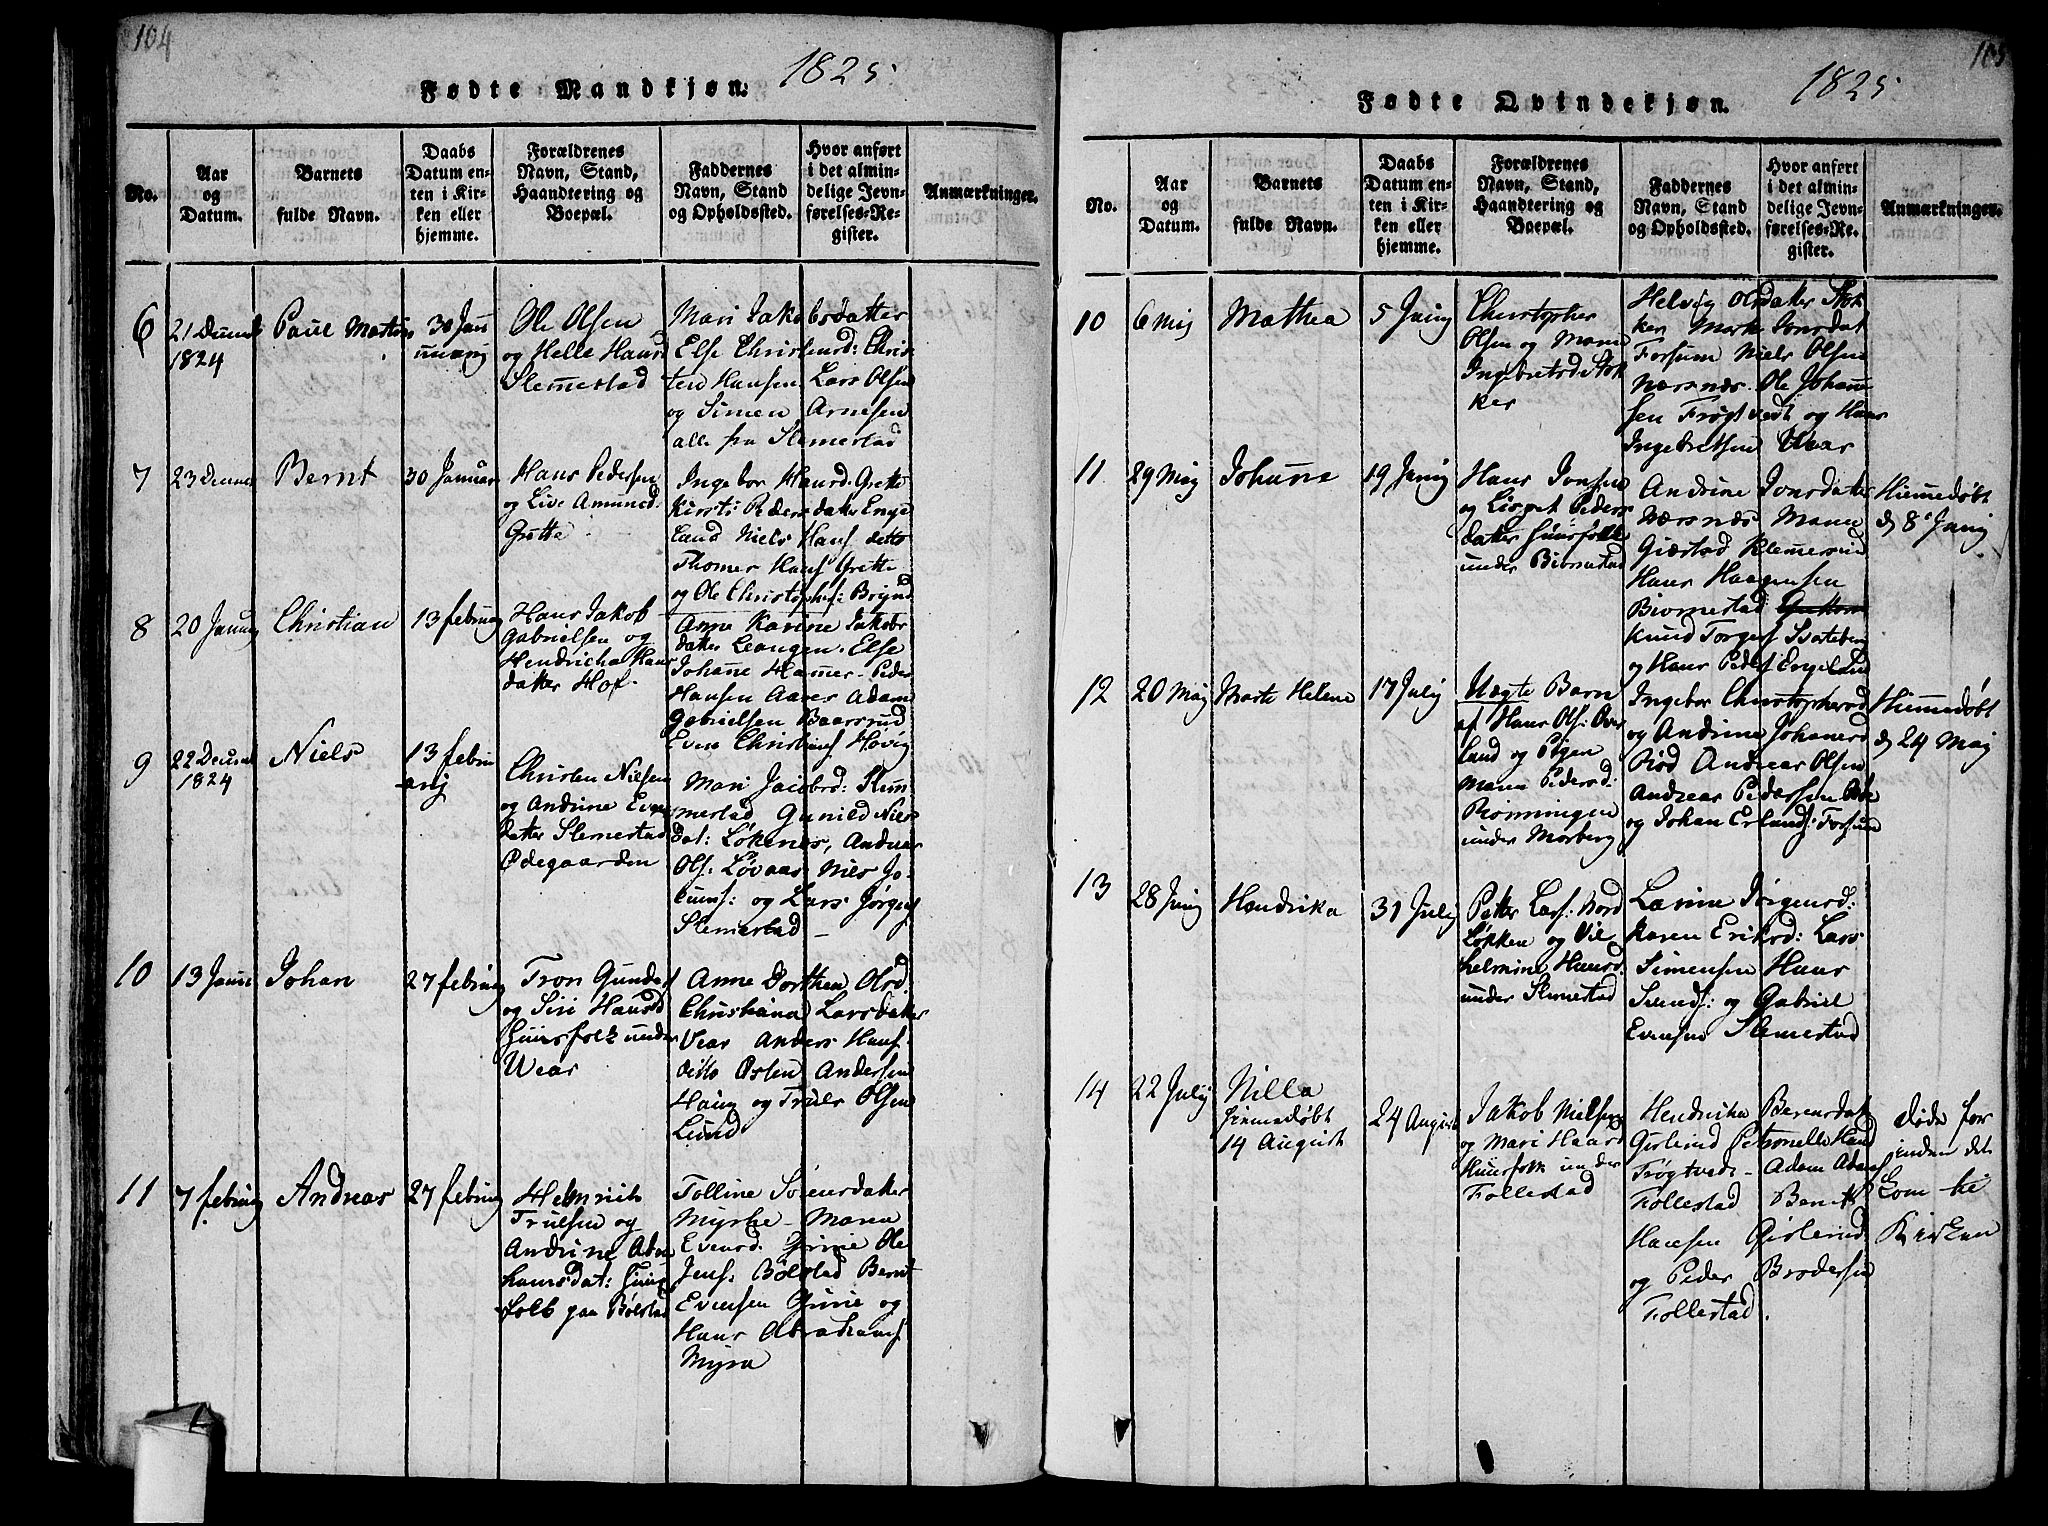 104
Fødte Mandkjøn. 1825.
No.
Aar
og
Datum.
Barnets
fulde Navn.
Daabs
Datum en-
ten i Kir-
ken eller
hjemme.
Forældrenes
Navn, Stand,
Haandtering og
Boepæl.
Faddernes
Navn, Stand
og Opholdssted.
Hvor anført
i det almin-
delige Jevn-
førelses-Re-
gister.
Anmærkninger.
6
21 Decemb
1824
Paul
30 Jan
Ole Olsen
og Helle Hansd
Slemestad
Mari Jakobsdatter
Else Christensd: Chris
ten Hansen Lars Olsen
og Simen Arnesen
alle fra Slemestad
7
23 Decem
Bernt
30 Januar
Hans Pedersen
og Live Amund.
Grette
Ingebor Hansd. Grette
Kirsti Pedersdatter Enge
Lund Niels Hans ditto
Thomes Hans Grette
og Ole Christophs:
8
20 Januarj
Christian
13 februarj
Hans Jakob
Gabrielsen og
Hendricha Hans
datter Hof.
Anne Karine Jakobs
datter Leangen. Else
Johanne Hamer. Peder
Hansen Aares Adam
Gabrielsen Baarsrud
Even Christians Høvig
9
22 Decemb
1824
Niels
13 febru
arij
Christen Nielsen
og Andrine Evens
datter Slemestad
Ødegaarden
Mari Jacobsd: Slem
mestad Gunild Niels
Dat: Løkenes, Andreas
Ols: Løvaas Niels Ja-
cobs: og Lars Jørgens
Slemestad
10
13 Janu
Johan
27 februarj
Tron Gunders
og Siri Hansd
Huusfolk under
Wear
Anne Dorthea Olsd.
Christiana Larsdatter
Vear Anders Hans.
ditto Østen Andersen
Haug og Truls Olsen
Lund
11
7 februarj
Andreas
27 februarj
Helmrich
Trulsen og
Andrine Abra
hamsdat: Huus
folk paa Bølstad
Tolline Sørensdatter
Myrhe Maren
Evensd. Gjerie Ole
Jens: Bølstad Bernt
Evensen Gjerie og
Hans Abrahams
Myra
105
Fødte Qvindekjøn. 1825.
No.
Aar
og
Datum.
Barnets
fulde Navn.
Daabs
Datum en-
ten i Kir-
ken eller
hjemme.
Forældrenes
Navn, Stand,
Haandtering og
Boepæl.
Faddernes
Navn, Stand
og Opholdssted.
Hvor anført
i det almin-
delige Jevn-
førelses-Re-
gister.
Anmærkninger.
10
6 Maj
Mathea
5 Junij
Christopher
Olsen og Maren
Ingebretsd Stok
ker
Helvig Olsdatter Stok
ker Marte Jonsdat
Forsum Niels Olsen
Nærsnæs. Ole Johanne
sen Frøgtvedt og Hans
Ingebretsen Vear
11
29 Maj
Johanne
19 Junij
Hans Jonsen
og Lispet Peders
datter Huusfolk
under Biornestad
Andrine Jonsdatter
Nærsnæs Maren
Giestad Klemetsrud
Hans Haagensen
Biornestad
Knud Torgers Svatebøe
og Hans Peders Engelund
Hiemmedøbt
d 8de Junij
12
20 Maj
Marte Helene
17 Julij
Uægte Barn
af Hans Ols: Over
land og Pigen
Maren Pedersd:
Rønningen
under Morberg
Ingebor Christophersd
og Andrine Johansd
Rød Andreas Olsen
Andreas Pedersen
og Johan Erlands: Forsum
Hiemmedøbt
d 24 Maj
13
28 Junij
Hendrika
31 Julij
Petter Lars: Nord
Løkken og Vil
helmine Hansd.
under Slemestad
Larine Jørgensd:
Karen Eriksd: Lars
Simensen Hans
Svends: og Gabriel
Evensen Slemestad
14
22 Julij
Nilla
hiemmedøbt
14 August
24 August
Jakob Nielsen
og Mari Haars
Huusfolk under
Follestad
Hendricha Berensdat
Gislerud Petronelle Hans
Frøgtvedt Adam Adams
Follestad Bernt
Hansen Gislerud
og Peder Brodersen
Follestad.
døde for
jnden det
Kom til
Kirken